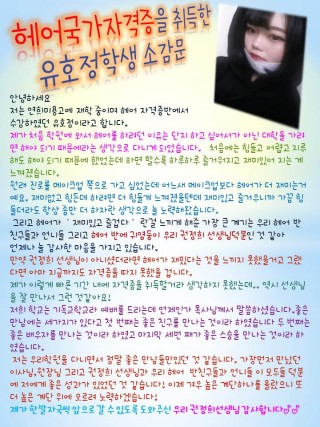 헤어국가자격증을 취득한
유호정학생 소감문
안녕하세요
저는 연희미용고에 재학 중이며 헤어 자격증반에서
수강하였던 유호정이라고 합니다.
제가 처음 학원에 와서 헤어를 하려던 이유는 단지 하고 싶어서가 아닌 대학을 가려
면 해야 되기 때문에라는 생각으로 다니게 되었습니다. 처음에는 힘들고 어렵고 지루
해도 해야 되기 때문에 했었는데 하면 할수록 하루하루 즐거워지고 재미있어 지는 게
느껴졌습니다.
원래 진로를 메이크업 쪽으로 가고 싶었는데 어느새 메이크업보다 헤어가 더 재미는거
예요. 재미없고 힘든데 하려면 더 힘들게 느껴졌을텐데 재미있고 즐거우니까 가끔 힘
들더라도 항상 좀만 더 하자란 생각으로 늘 노력해왔습니다.
그리고 헤어가 ' 재미있고 즐겁다 ' 란걸 느끼게 해준 가장 큰 계기는 우리 헤어 반
친구들과 언니들 그리고 헤어 반에 귀염둥이 우리 권정희 선생님덕분인 것 같아
언제나 늘 감사한 마음을 가지고 있습니다.
만약 권정희 선생님이 아니셨더라면 헤어가 재밌다는 것을 느끼지 못했을거고 그랬
다면 아마 지금까지도 자격증을 따지 못했을 겁니다.
제가 이렇게 빠른 기간 내에 자격증을 취득할거라 생각하지 못했는데.. 역시 선생님
을 잘 만나서 그런 것같아요!
저희 학교는 기독교학교라 예배를 드리는데 언제인가 목사님께서 말씀하셨습니다.좋은
만남에는 세가지가 있다고 첫 번째는 좋은 친구를 만나는 것이라 하였습니다 두 번째는
좋은 배우자를 만나는 것이라 하였고 마지막 세번 째가 좋은 스승을 만나는 것이라 하
였습니다.
저는 우리학원을 다니면서 정말 좋은 만남들만있던 것 같습니다. 가장먼저 만났던
이사님,원장님 그리고 권정희 선생님과 우리 헤어 반친구들과 언니들 이 모두들 덕분
에 저에게 좋은 성과가 있었던 것 같습니다! 이제 겨우 높은 계단하나를 올랐으니 또
더 높은 계단 위에 오르려 노력하겠습니다!
제가 한발자국씩 앞으로 갈 수 있도록 도와주신 우리 권정희선생님 감사합니다